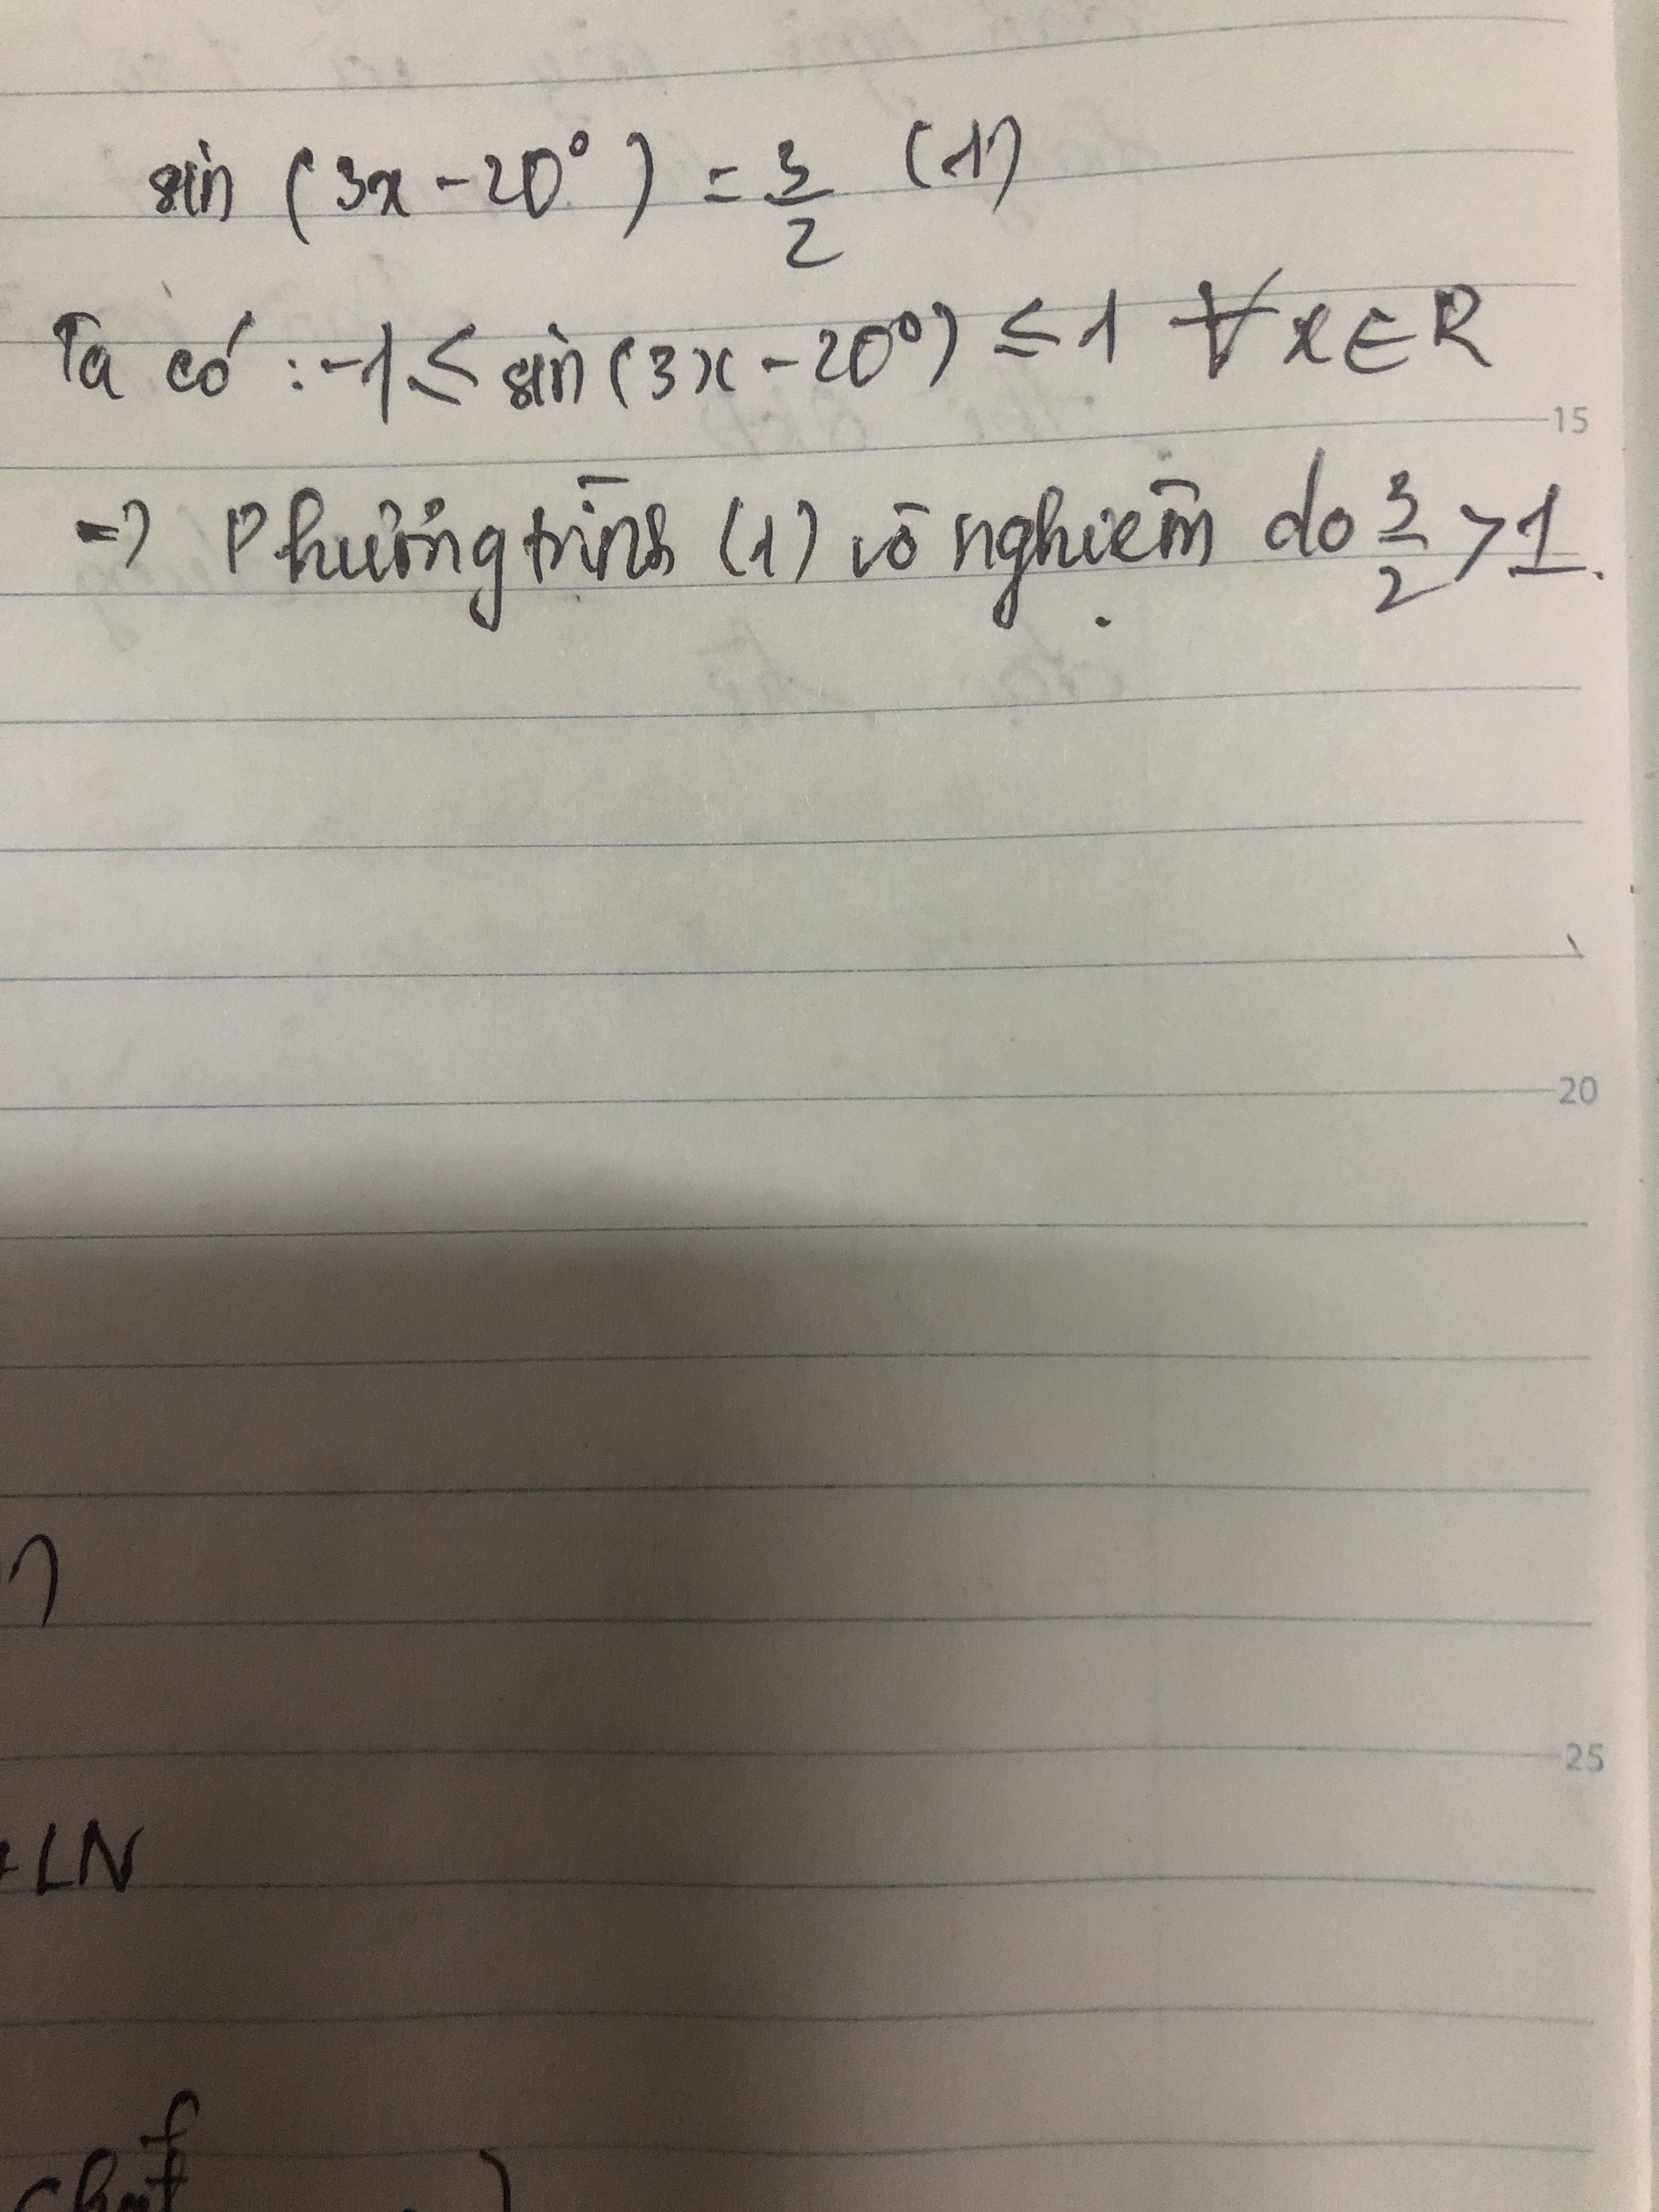 sin (3x - 20°) = 3/2 (1)
Ta có : -1 ≤ sin (3x - 20°) ≤ 1 ∀ x ∈ R
15
=> Phương trình (1) vô nghiệm do 3/2 > 1.
20
25
LN